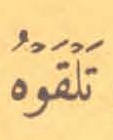 تَلْقَوْهُ